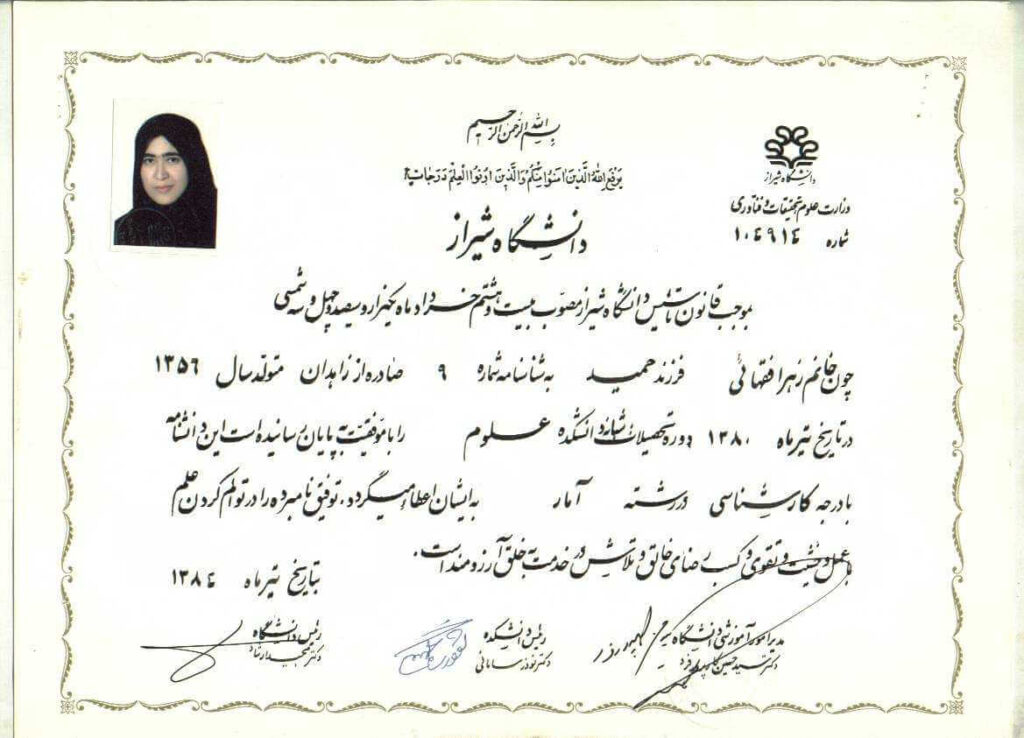 بسم الله الرحمن الرحیم
یرفع الله الذین امنوا منکم والذین اوتوا العلم درجات
دانشگاه شیراز
وزارت علوم تحقیقات و فناوری
شماره ۱۰٤۹۱٤
دانشگاه شیراز
بموجب قانون تأسیس دانشگاه شیراز مصوّب بیست و هشتم خرداد ماه یکهزار و سیصد و چهل و سه شمسی
چون خانم زهرا فقهائی فرزند حمید به شناسنامه شماره ۹ صادره از زاهدان متولد سال ۱۳۵٦
در تاریخ تیرماه ۱۳۸۰ دوره تحصیلات شبانه دانشکده علوم را با موفقیّت به پایان رسانیده است این دانشنامه
با درجه کارشناسی در رشته آمار به ایشان اعطاء میگردد. توفیق نامبرده را در توأم کردن علم
با عمل و خشیت و تقوی و کسب رضای خالق و تلاش در خدمت به خلق آرزومند است.
بتاریخ تیرماه ۱۳۸٤
مدیر امور آموزشی دانشگاه
دکتر سید حسین
رئیس دانشکده
دکتر نوذر سامانی
رئیس دانشگاه
دکتر مجید ارشاد